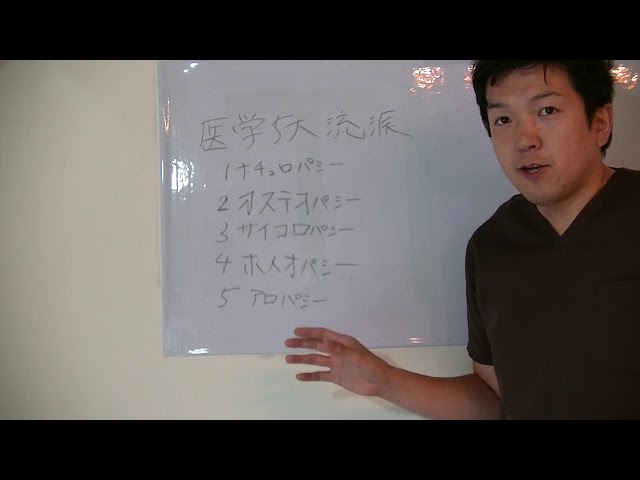 医学5大流派
1 ナチュロパシー
2 オステオパシー
3 サイコロパシー
4 ホメオパシー
5 アロパシー